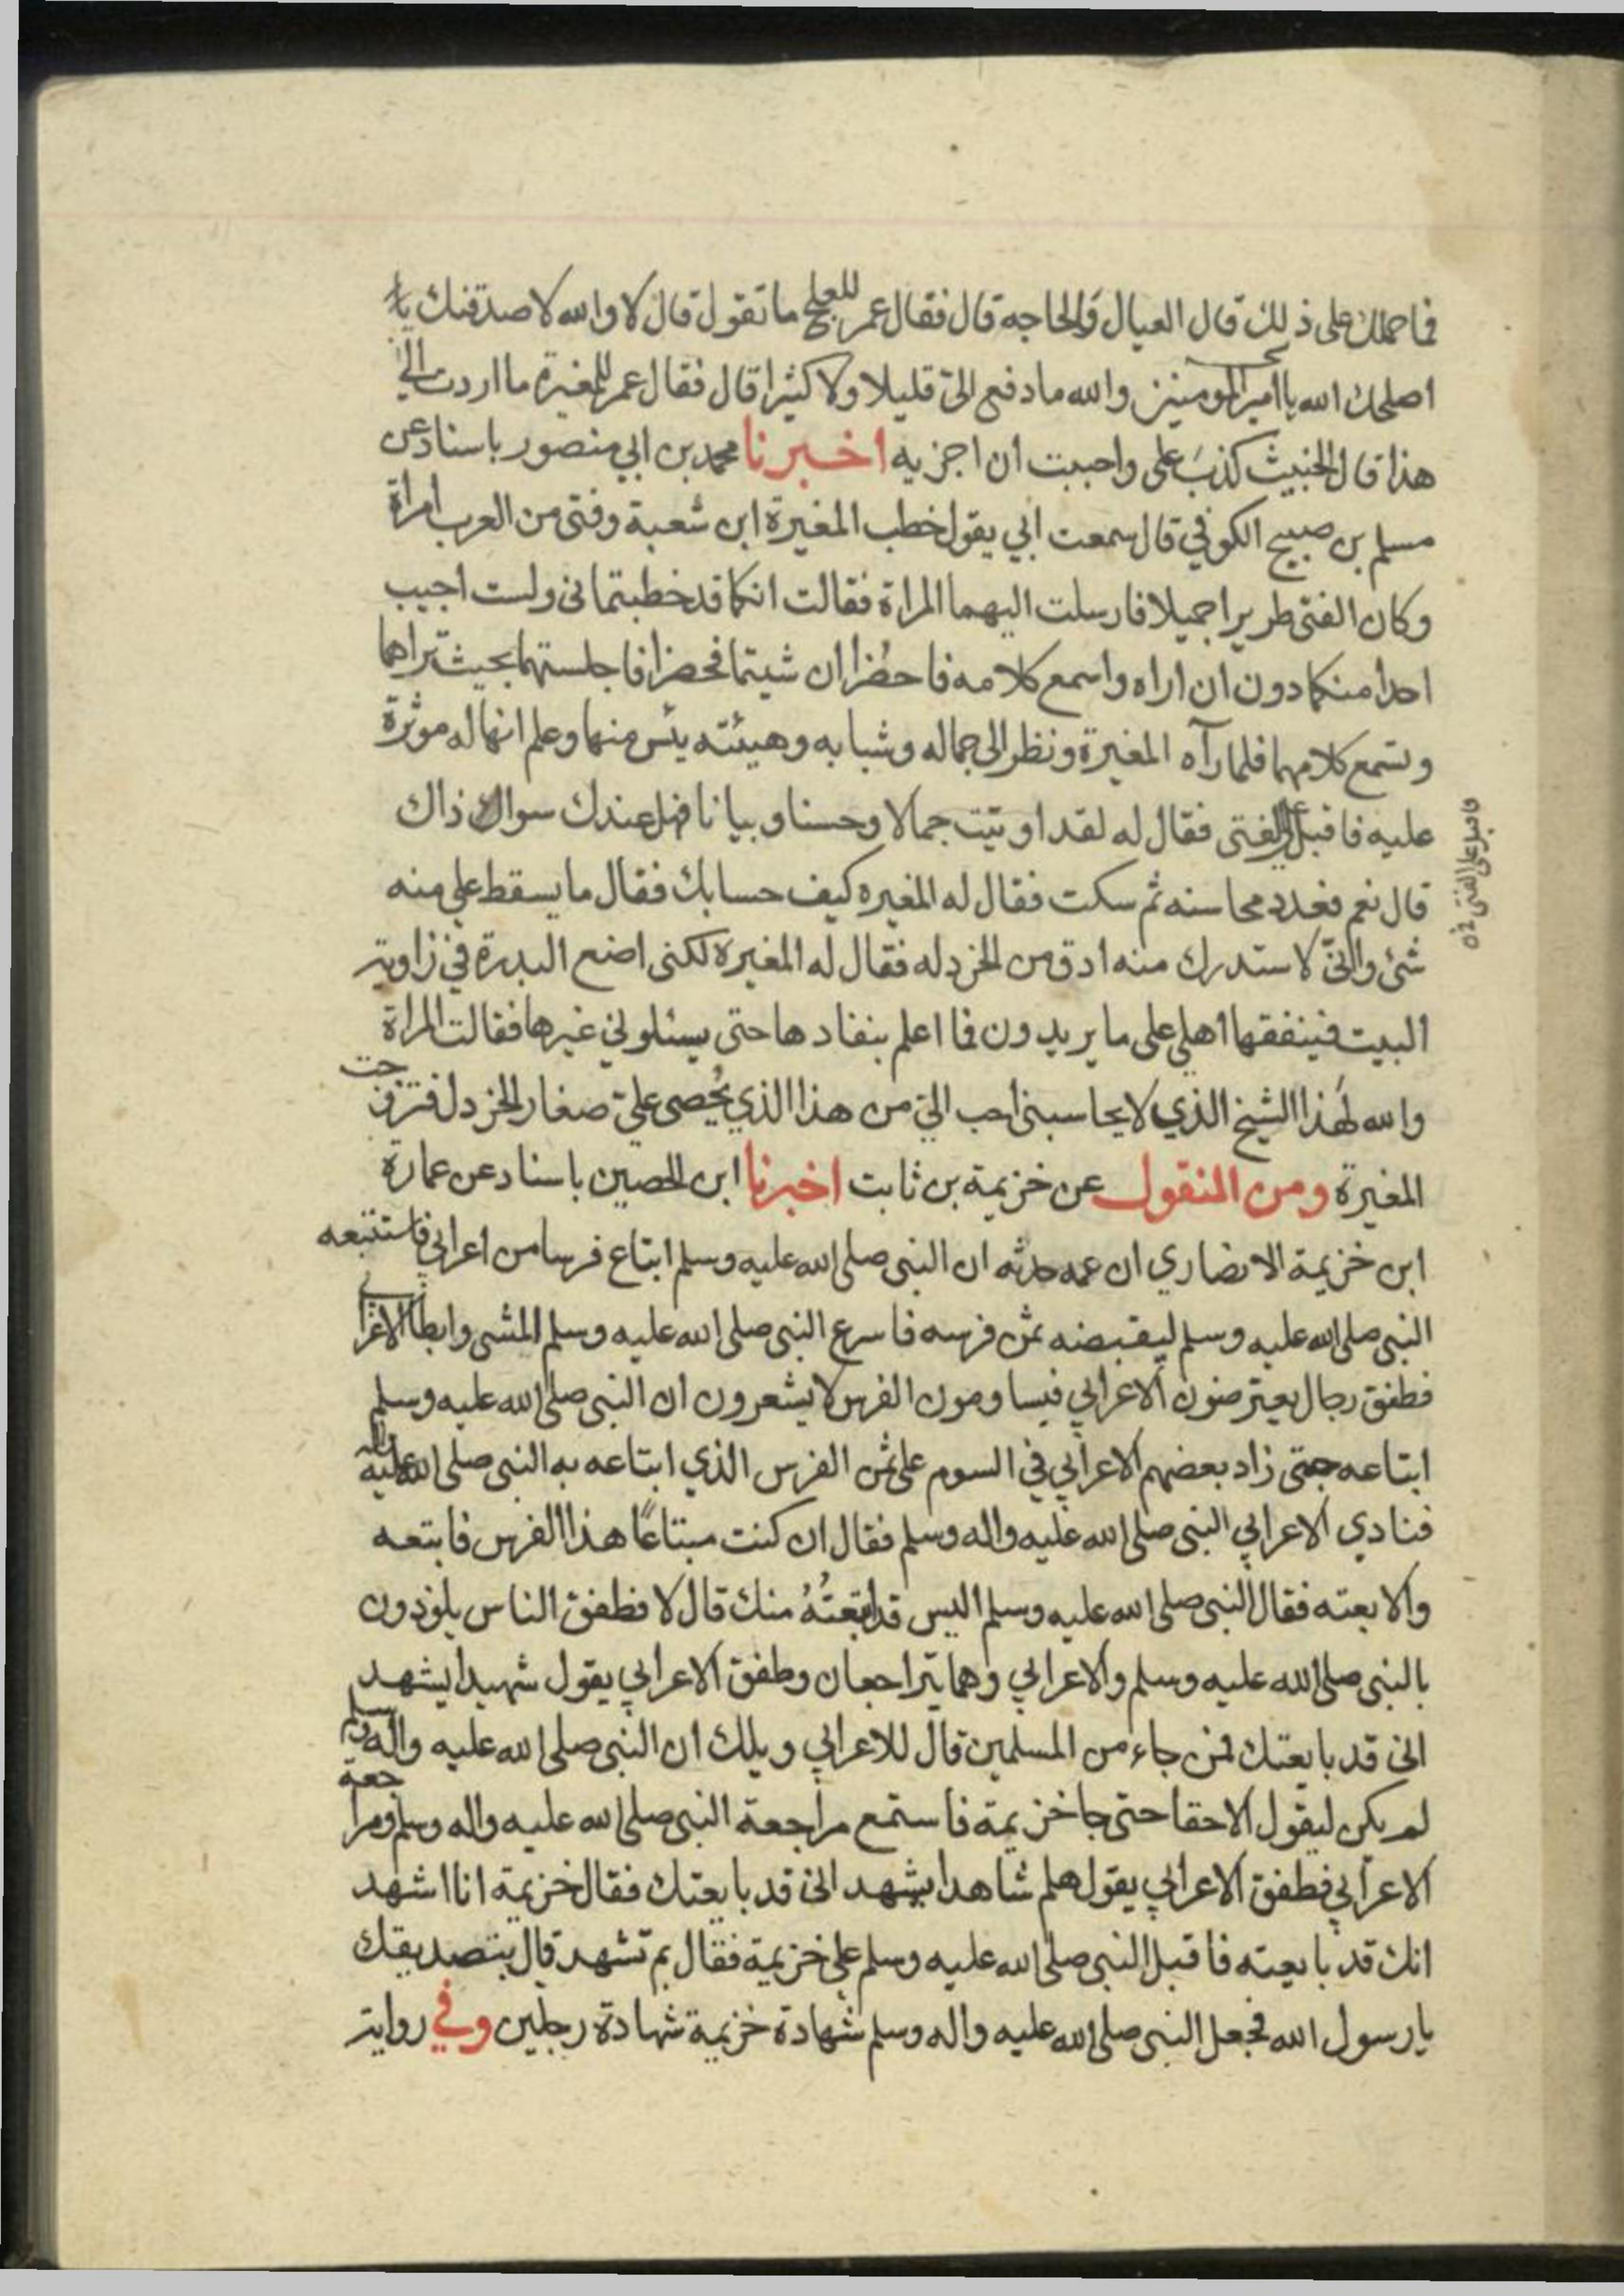 فما حملك على ذلك قال العيال والحاجه قال فقال عمر للعلج ما تقول قال لا والله لاصدقنك يا
اصلحك الله يا امير المومنين والله ما دفع الىّ قليلا ولا كثيرا قال فقال عمر للمغيرة ما اردت الى
هذا قال الخبيث كذبَ على واحببت ان اجزيه اخبرنا محمد بن ابي منصور باسناد عن
مسلم بن صبيح الكوفي قال سمعت ابي يقول خطب المغيرة ابن شعبة وفتى من العرب امراة
وكان الفتى طريرا جميلا فارسلت اليهما المراة فقالت انكما قد خطبتمانى ولست اجيب
احدا منكما دون ان اراه واسمع كلامه فاحضُرا ان شيتما فحضرا فاجلستهما بحيث تراهما
وتسمع كلامهما فلما رآه المغيرة ونظر الى جماله وشبابه وهيئته يئس منها وعلم انها له موثرة
عليه فاقبل على الفتى فقال له لقد اوتيت جمالا وحسنا وبيانا فهل عندك سواك ذاك
فاقبل على الفتى
قال نعم فعدد محاسنه ثم سكت فقال له المغيره كيف حسابك فقال ما يسقط على منه
شئ وانىّ لاستدرك منه ادق من الخردله فقال له المغيرة لكنى اضع البدرة في زاوية
البيت فينفقها اهلي على ما يريدون فما اعلم بنفادها حتى يسئلوني غيرها فقالت المراة
والله لَهذا الشيخ الذي لا يحاسبنى احب الىّ من هذا الذي يُحصى علىّ صغار الخردل فتزوجت
المغيرة ومن المنقول عن خزيمة بن ثابت اخبرنا ابن الحصين باسناد عن عمارة
ابن خزيمة الانصاري ان عمه حدثه ان النبى صلى الله عليه وسلم ابتاع فرسا من اعرابي فاستتبعه
النبى صلى الله عليه وسلم ليقبضه ثمن فرسه فاسرع النبى صلى الله عليه وسلم المشى وابطا الاعرابي
فطفق رجال يعترضون الاعرابي فيساومون الفرس لا يشعرون ان النبى صلى الله عليه وسلم
ابتاعه حتى زاد بعضهم الاعرابي في السوم على ثمن الفرس الذي ابتاعه به النبى صلى الله عليه
فنادي الاعرابي النبى صلى الله عليه واله وسلم فقال ان كنت مبتاعًا هذا الفرس فابتعه
والا بعته فقال النبى صلى الله عليه وسلم اليس قد ابتعتُهُ منك قال لا فطفق الناس يلوذون
بالنبى صلى الله عليه وسلم والاعرابي وهما يتراجعان وطفق الاعرابي يقول شهيدا يشهد
انى قد بايعتك فمن جاء من المسلمين قال للاعرابي ويلك ان النبى صلى الله عليه واله وسلم
لم يكن ليقول الا حقا حتى جا خزيمة فاستمع مراجعة النبى صلى الله عليه واله وسلم ومراجعة
الاعرابي فطفق الاعرابي يقول هلم شاهدا يشهد انى قد بايعتك فقال خزيمة انا اشهد
انك قد بايعته فاقبل النبى صلى الله عليه وسلم على خزيمة فقال بم تشهد قال بتصديقك
يا رسول الله فجعل النبى صلى الله عليه واله وسلم شهادة خزيمة شهادة رجلين وفي رواية